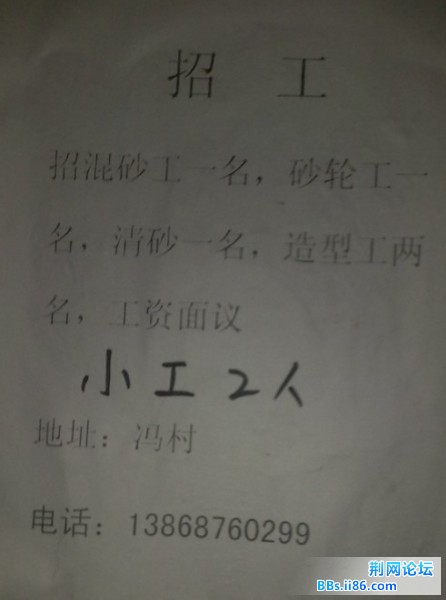 招 工
招混砂工一名，砂轮工一
名，清砂一名，造型工两
名，工资面议
小工2人
地址：冯村
电话：13868760299
荆网论坛
BBs.ii86.com